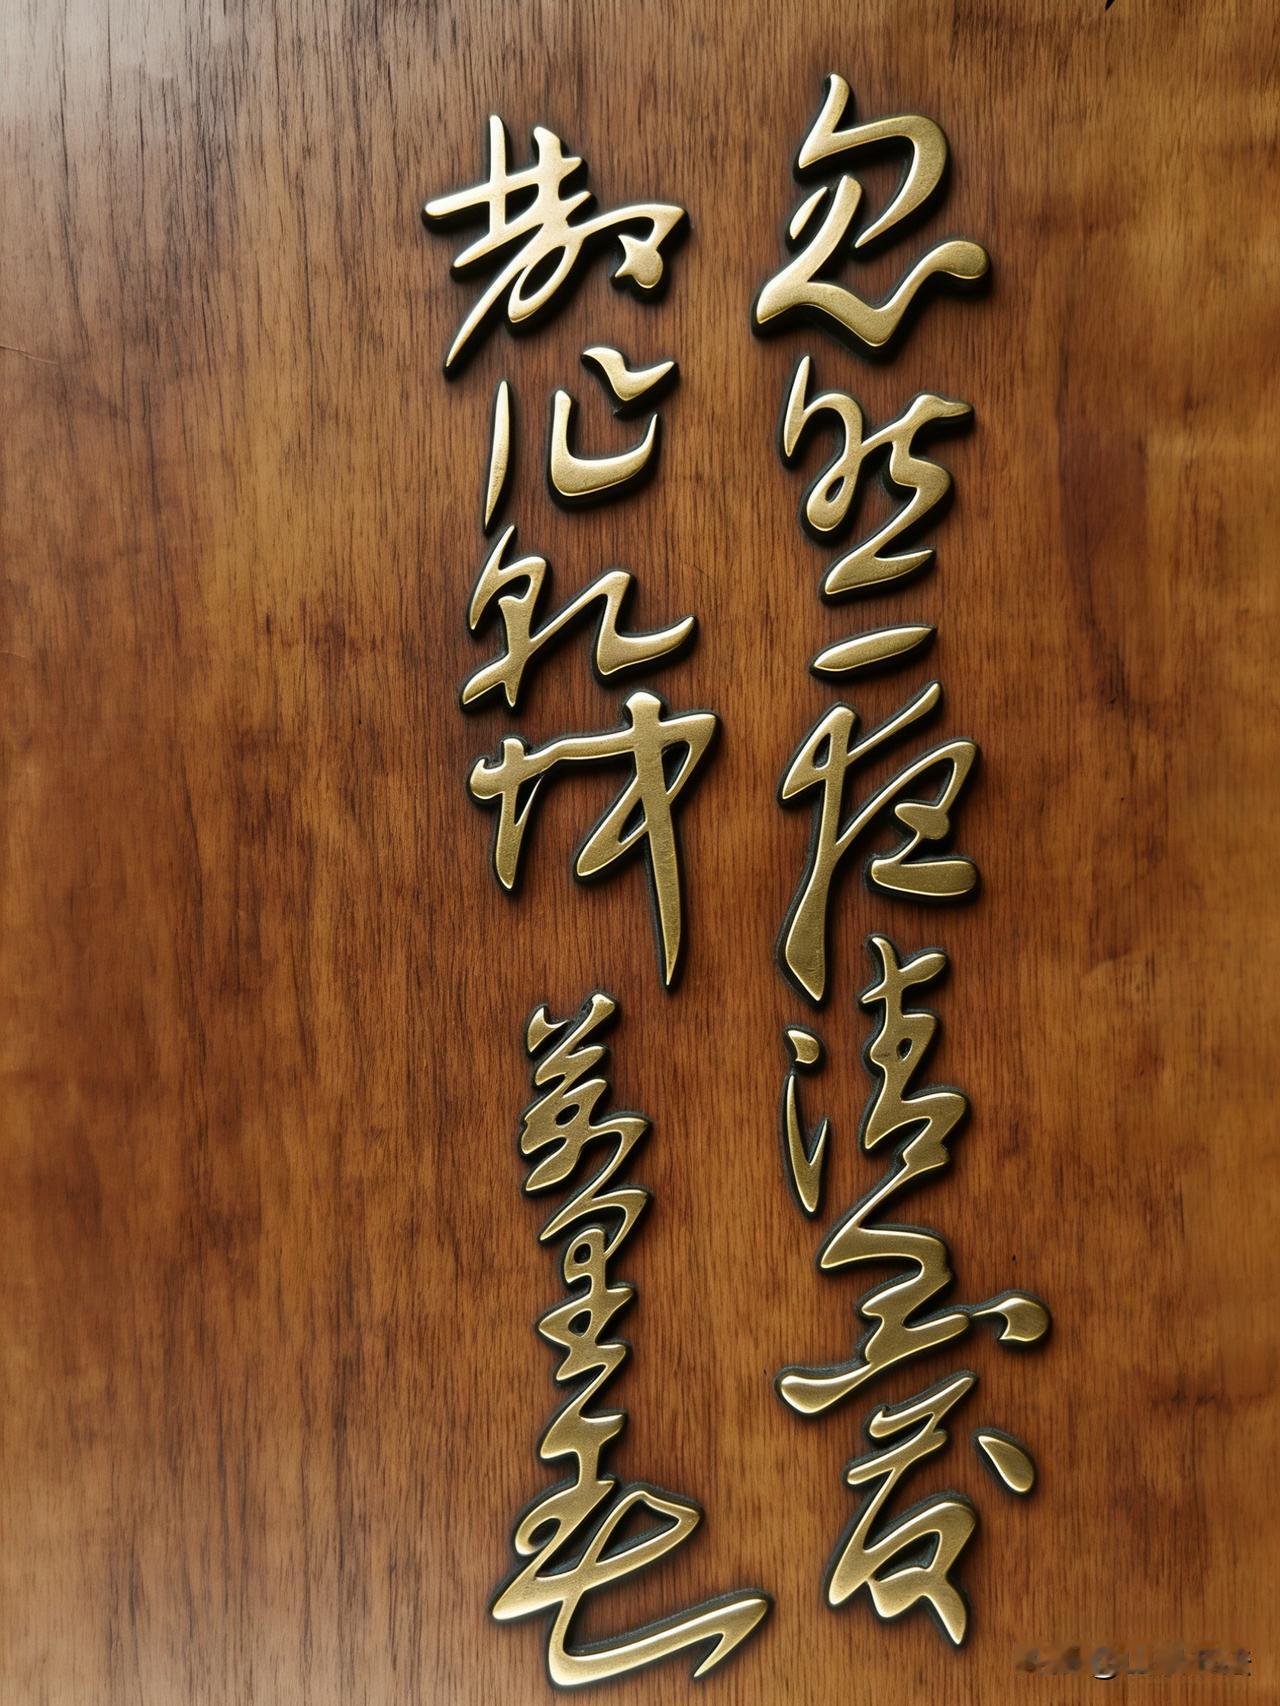 忽然一夜清香发
散作乾坤萬里春